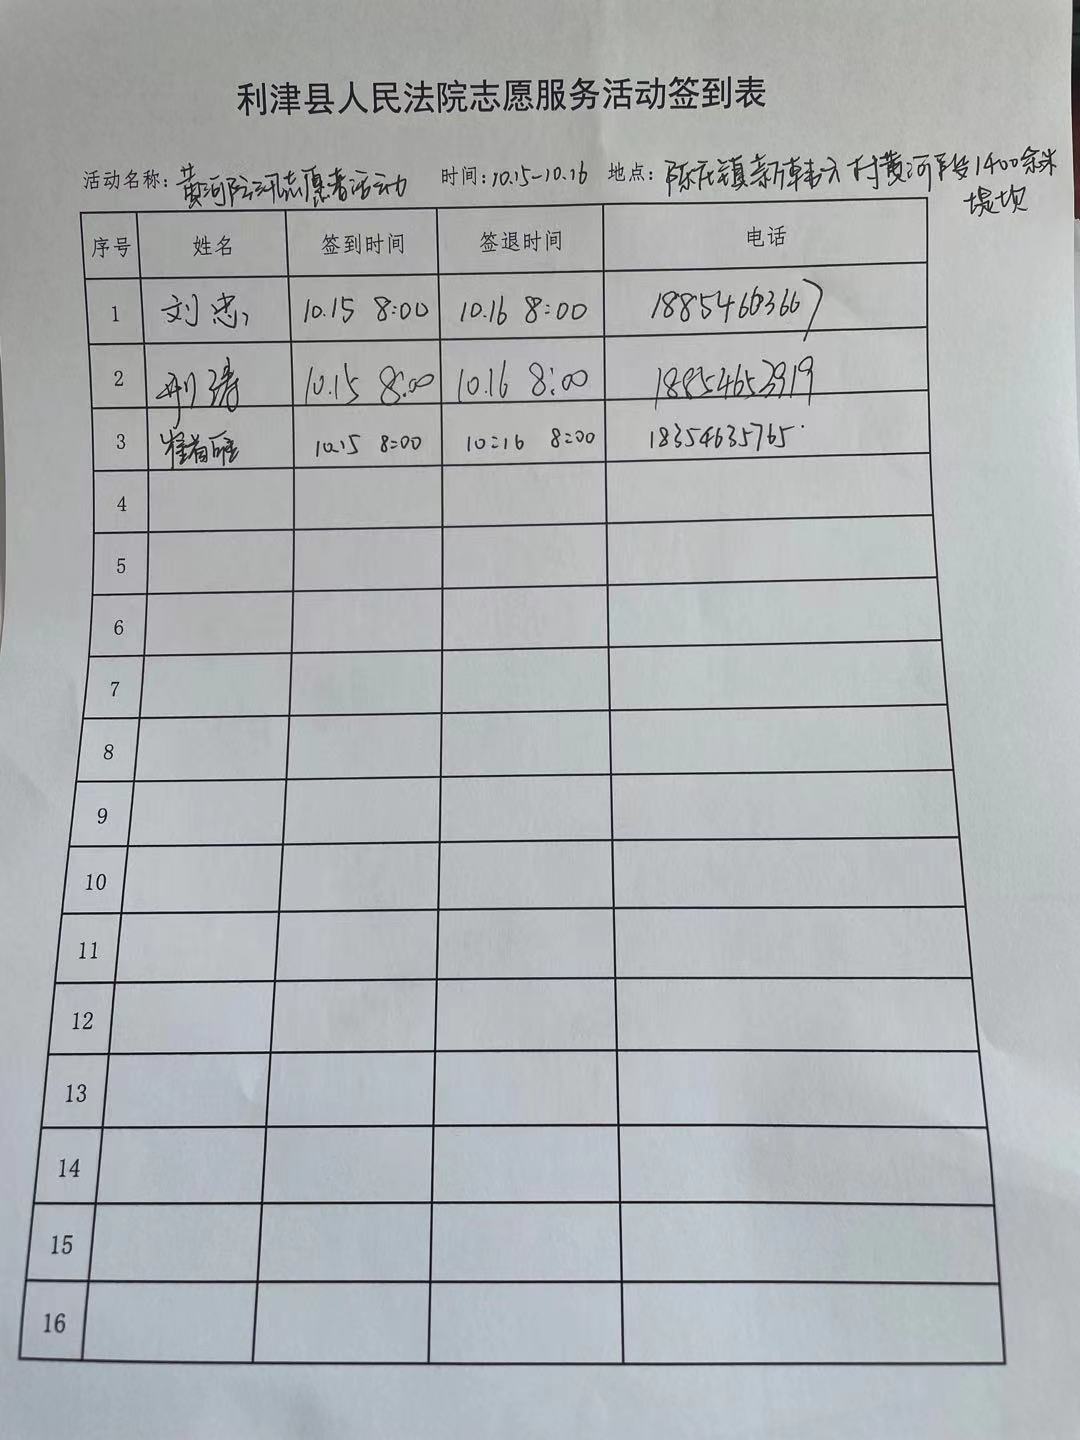 利津县人民法院志愿服务活动签到表
活动名称：黄河防汛志愿者活动 时间：10.15-10.16 地点：陈庄镇新韩 村黄河 段1400余米
堤坝
序号 姓名 签到时间 签退时间 电话
1 刘忠 10.15 8:00 10.16 8:00 18854663667
2 涛 10.15 8:00 10.16 8:00 18854653919
3 崔 10.15 8:00 10:16 8:00 18354635765
4
5
6
7
8
9
10
11
12
13
14
15
16